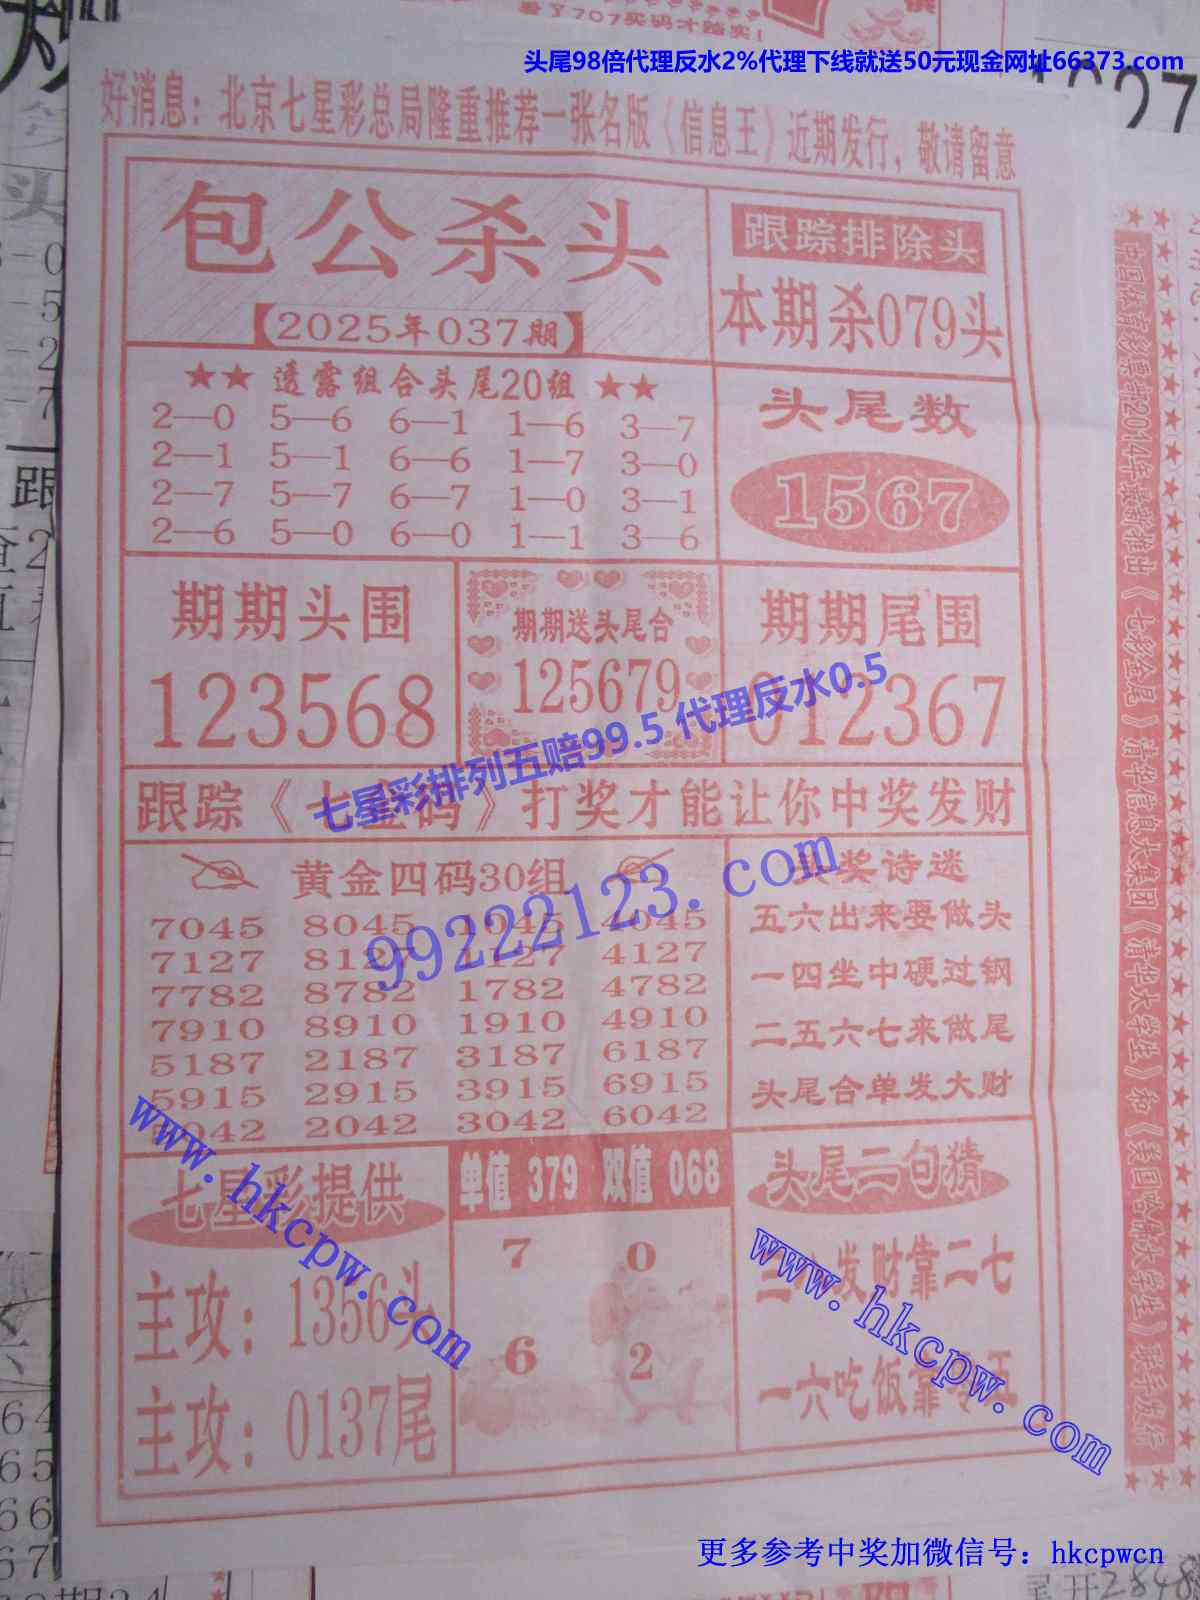 看了707买码才踏实!
头尾98倍代理反水2%代理下线就送50元现金网址66373.com
好消息：北京七星彩总局隆重推荐一张名版《信息王》近期发行，敬请留意
包公杀头
【2025年037期】
跟踪排除头
本期杀079头
★★ 透露组合头尾20组 ★★
2—0 5—6 6—1 1—6 3—7
2—1 5—1 6—6 1—7 3—0
2—7 5—7 6—7 1—0 3—1
2—6 5—0 6—0 1—1 3—6
头尾数
1567
期期头围
123568
期期送头尾合
125679
期期尾围
012367
七星彩排列五赔99.5 代理反水0.5
跟踪《七金码》打奖才能让你中奖发财
黄金四码30组
7045 8045 1045 4045
7127 8127 1127 4127
7782 8782 1782 4782
7910 8910 1910 4910
5187 2187 3187 6187
5915 2915 3915 6915
5042 2042 3042 6042
99222123.com
奖诗迷
五六出来要做头
一四坐中硬过钢
二五六七来做尾
头尾合单发大财
七星彩提供
主攻：1356头
主攻：0137尾
www.hkcpw.com
单值 379 双值 068
7 0
6 2
头尾二句猜
发财靠二七
一六吃饭靠
www.hkcpw.com
中国体育彩票市2014年最新推出《七彩金尾》清华信息大集团《清华大学生》和《美国哈佛大学生》联手发行
更多参考中奖加微信号：hkcpwcn